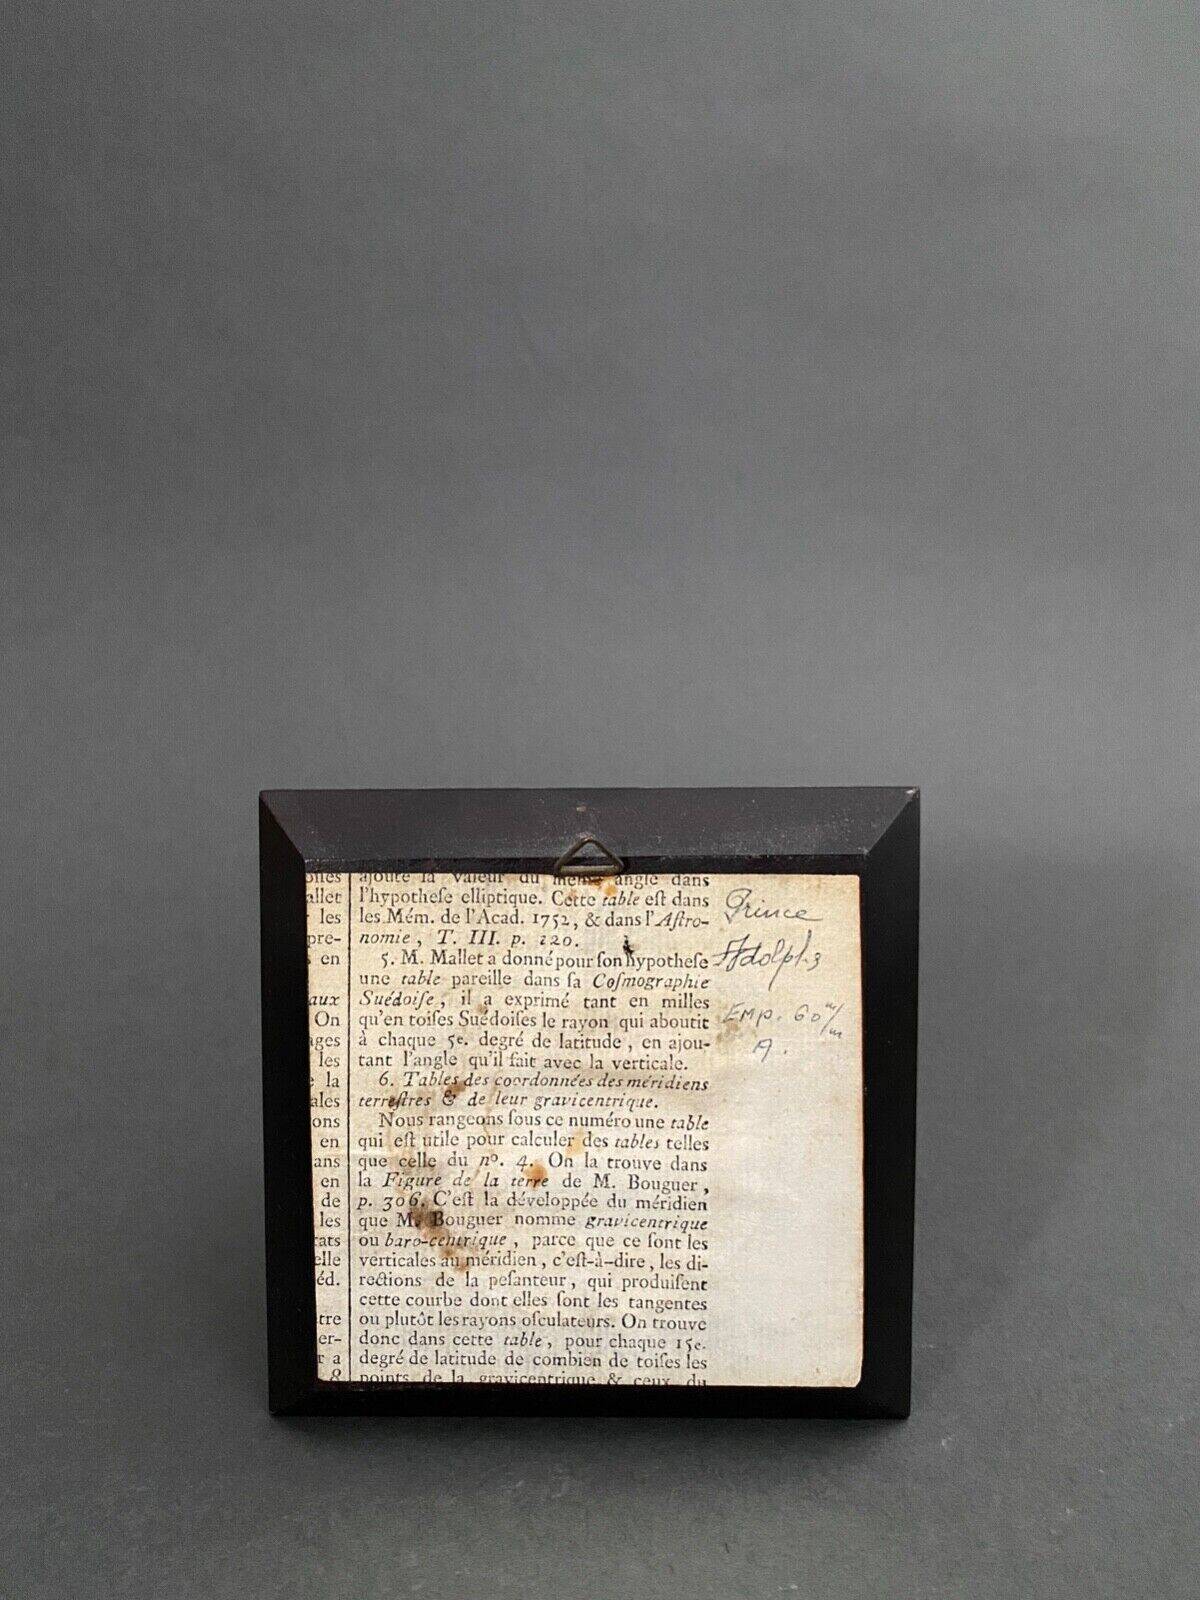 oises
allet
les
pre-
en
aux
On
ages
les
la
ales
ons
en
ans
en
de
les
tats
elle
éd.
tre
er-
r a
8
ajoute la valeur du même angle dans
l'hypotheſe elliptique. Cette table eſt dans
les Mém. de l'Acad. 1752, & dans l'Aſtro-
nomie, T. III. p. 220.
5. M. Mallet a donné pour ſon hypotheſe
une table pareille dans ſa Coſmographie
Suédoiſe, il a exprimé tant en milles
qu'en toiſes Suédoiſes le rayon qui aboutit
à chaque 5e. degré de latitude, en ajou-
tant l'angle qu'il fait avec la verticale.
6. Tables des coordonnées des méridiens
terreſtres & de leur gravicentrique.
Nous rangeons ſous ce numéro une table
qui eſt utile pour calculer des tables telles
que celle du nº. 4. On la trouve dans
la Figure de la terre de M. Bouguer,
p. 306. C'eſt la développée du méridien
que M. Bouguer nomme gravicentrique
ou baro-centrique, parce que ce ſont les
verticales au méridien, c'eſt-à-dire, les di-
rections de la peſanteur, qui produiſent
cette courbe dont elles ſont les tangentes
ou plutôt les rayons oſculateurs. On trouve
donc dans cette table, pour chaque 15e.
degré de latitude de combien de toiſes les
points de la gravicentrique & ceux du
Prince
Adolphe
EMP. 60 m/m
A.